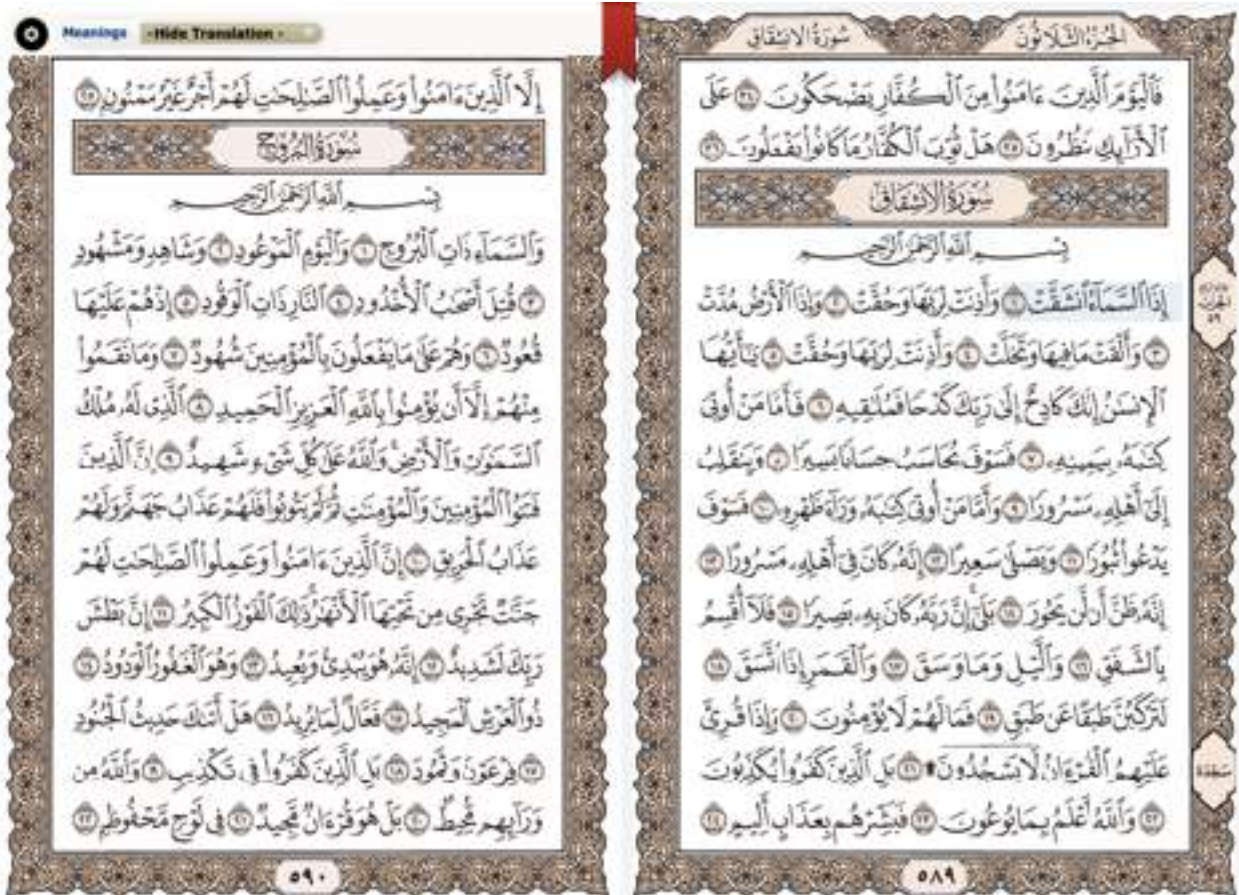 Meanings
- Hide Translation -
سُورَةُ الانشِقَاق
الجُزءُ الثَّلَاثُونَ
فَٱلْيَوْمَ ٱلَّذِينَ ءَامَنُوا۟ مِنَ ٱلْكُفَّارِ يَضْحَكُونَ ٣٤ عَلَى
ٱلْأَرَآئِكِ يَنظُرُونَ ٣٥ هَلْ ثُوِّبَ ٱلْكُفَّارُ مَا كَانُوا۟ يَفْعَلُونَ ٣٦
سُورَةُ الانشِقَاقِ
بِسْمِ ٱللَّهِ ٱلرَّحْمَٰنِ ٱلرَّحِيمِ
إِذَا ٱلسَّمَآءُ ٱنشَقَّتْ ١ وَأَذِنَتْ لِرَبِّهَا وَحُقَّتْ ٢ وَإِذَا ٱلْأَرْضُ مُدَّتْ
٣ وَأَلْقَتْ مَا فِيهَا وَتَخَلَّتْ ٤ وَأَذِنَتْ لِرَبِّهَا وَحُقَّتْ ٥ يَٰٓأَيُّهَا
ٱلْإِنسَٰنُ إِنَّكَ كَادِحٌ إِلَىٰ رَبِّكَ كَدْحًا فَمُلَٰقِيهِ ٦ فَأَمَّا مَنْ أُوتِىَ
كِتَٰبَهُۥ بِيَمِينِهِۦ ٧ فَسَوْفَ يُحَاسَبُ حِسَابًا يَسِيرًا ٨ وَيَنقَلِبُ
إِلَىٰٓ أَهْلِهِۦ مَسْرُورًا ٩ وَأَمَّا مَنْ أُوتِىَ كِتَٰبَهُۥ وَرَآءَ ظَهْرِهِۦ ١٠ فَسَوْفَ
يَدْعُوا۟ ثُبُورًا ١١ وَيَصْلَىٰ سَعِيرًا ١٢ إِنَّهُۥ كَانَ فِىٓ أَهْلِهِۦ مَسْرُورًا ١٣
إِنَّهُۥ ظَنَّ أَن لَّن يَحُورَ ١٤ بَلَىٰٓ إِنَّ رَبَّهُۥ كَانَ بِهِۦ بَصِيرًا ١٥ فَلَآ أُقْسِمُ
بِٱلشَّفَقِ ١٦ وَٱلَّيْلِ وَمَا وَسَقَ ١٧ وَٱلْقَمَرِ إِذَا ٱتَّسَقَ ١٨
لَتَرْكَبُنَّ طَبَقًا عَن طَبَقٍ ١٩ فَمَا لَهُمْ لَا يُؤْمِنُونَ ٢٠ وَإِذَا قُرِئَ
عَلَيْهِمُ ٱلْقُرْءَانُ لَا يَسْجُدُونَ ۩ ٢١ بَلِ ٱلَّذِينَ كَفَرُوا۟ يُكَذِّبُونَ
٢٢ وَٱللَّهُ أَعْلَمُ بِمَا يُوعُونَ ٢٣ فَبَشِّرْهُم بِعَذَابٍ أَلِيمٍ ٢٤
الحزب
٥٩
سجدة
٥٨٩
إِلَّا ٱلَّذِينَ ءَامَنُوا۟ وَعَمِلُوا۟ ٱلصَّٰلِحَٰتِ لَهُمْ أَجْرٌ غَيْرُ مَمْنُونٍۭ ٢٥
سُورَةُ البُرُوجِ
بِسْمِ ٱللَّهِ ٱلرَّحْمَٰنِ ٱلرَّحِيمِ
وَٱلسَّمَآءِ ذَاتِ ٱلْبُرُوجِ ١ وَٱلْيَوْمِ ٱلْمَوْعُودِ ٢ وَشَاهِدٍ وَمَشْهُودٍ
٣ قُتِلَ أَصْحَٰبُ ٱلْأُخْدُودِ ٤ ٱلنَّارِ ذَاتِ ٱلْوَقُودِ ٥ إِذْ هُمْ عَلَيْهَا
قُعُودٌ ٦ وَهُمْ عَلَىٰ مَا يَفْعَلُونَ بِٱلْمُؤْمِنِينَ شُهُودٌ ٧ وَمَا نَقَمُوا۟
مِنْهُمْ إِلَّآ أَن يُؤْمِنُوا۟ بِٱللَّهِ ٱلْعَزِيزِ ٱلْحَمِيدِ ٨ ٱلَّذِى لَهُۥ مُلْكُ
ٱلسَّمَٰوَٰتِ وَٱلْأَرْضِ وَٱللَّهُ عَلَىٰ كُلِّ شَىْءٍ شَهِيدٌ ٩ إِنَّ ٱلَّذِينَ
فَتَنُوا۟ ٱلْمُؤْمِنِينَ وَٱلْمُؤْمِنَٰتِ ثُمَّ لَمْ يَتُوبُوا۟ فَلَهُمْ عَذَابُ جَهَنَّمَ وَلَهُمْ
عَذَابُ ٱلْحَرِيقِ ١٠ إِنَّ ٱلَّذِينَ ءَامَنُوا۟ وَعَمِلُوا۟ ٱلصَّٰلِحَٰتِ لَهُمْ
جَنَّٰتٌ تَجْرِى مِن تَحْتِهَا ٱلْأَنْهَٰرُ ذَٰلِكَ ٱلْفَوْزُ ٱلْكَبِيرُ ١١ إِنَّ بَطْشَ
رَبِّكَ لَشَدِيدٌ ١٢ إِنَّهُۥ هُوَ يُبْدِئُ وَيُعِيدُ ١٣ وَهُوَ ٱلْغَفُورُ ٱلْوَدُودُ ١٤
ذُو ٱلْعَرْشِ ٱلْمَجِيدُ ١٥ فَعَّالٌ لِّمَا يُرِيدُ ١٦ هَلْ أَتَىٰكَ حَدِيثُ ٱلْجُنُودِ
١٧ فِرْعَوْنَ وَثَمُودَ ١٨ بَلِ ٱلَّذِينَ كَفَرُوا۟ فِى تَكْذِيبٍ ١٩ وَٱللَّهُ مِن
وَرَآئِهِم مُّحِيطٌۢ ٢٠ بَلْ هُوَ قُرْءَانٌ مَّجِيدٌ ٢١ فِى لَوْحٍ مَّحْفُوظٍۭ ٢٢
٥٩٠